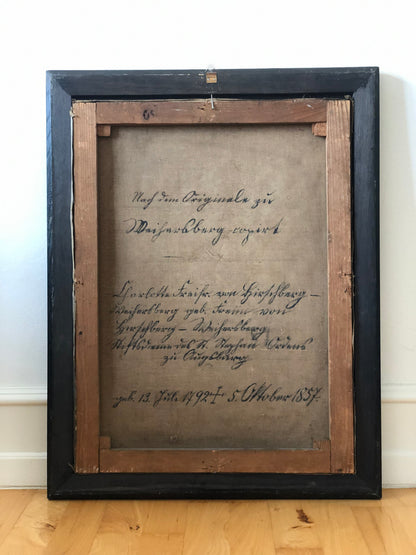 Nach dem Originale zu
Weihersberg copirt
Charlotte Freifr. von Hirschberg –
Weihersberg geb. Freiin von
Hirschberg – Weihersberg
Stiftsdame des St. Ordens
zu Augsburg
geb. 13. Juli 1792 † 5. Oktober 1857.